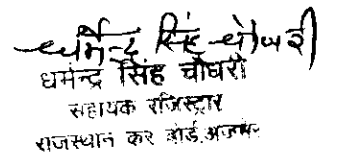 धर्मेन्द्र सिंह चौधरी
धर्मेन्द्र सिंह चौधरी
सहायक रजिस्ट्रार
राजस्थान कर बोर्ड, अजमेर